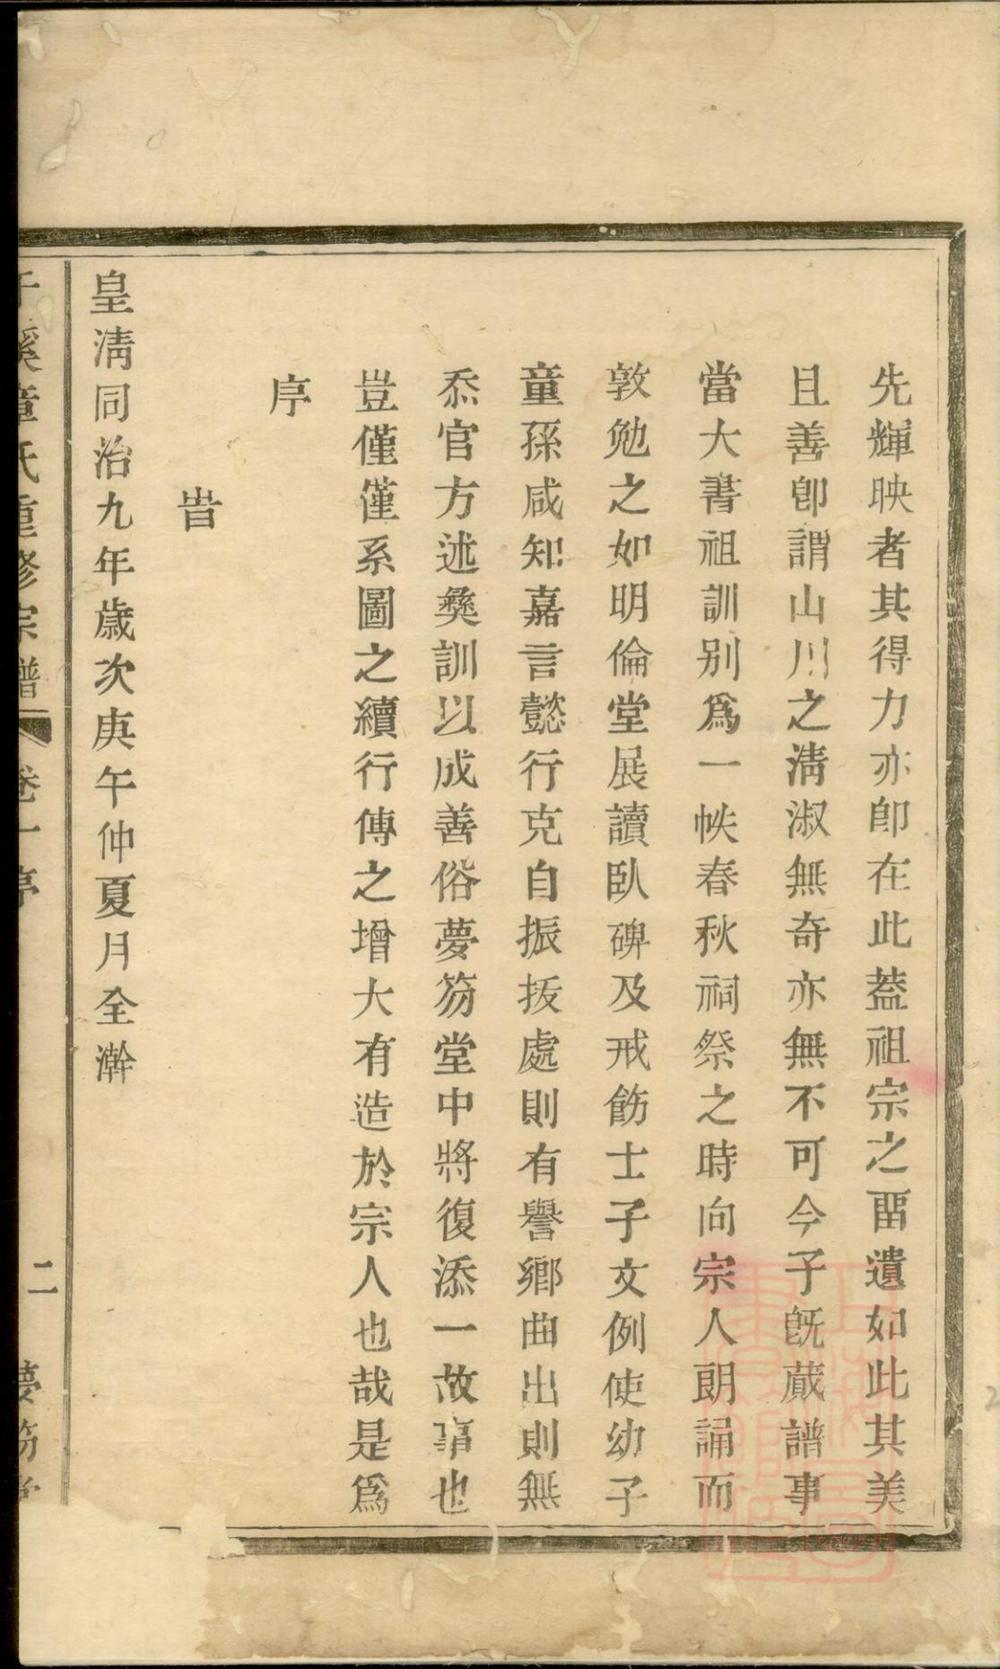 先輝映者其得力亦卽在此蓋祖宗之畱遺如此其美
且善卽謂山川之淸淑無奇亦無不可今子旣蕆譜事
當大書祖訓别爲一帙春秋祠祭之時向宗人朗誦而
敦勉之如明倫堂展讀臥碑及戒飭士子文例使幼子
童孫咸知嘉言懿行克自振拔處則有譽鄉曲出則無
忝官方述彜訓以成善俗夢笏堂中將復添一故事也
豈僅僅系圖之續行傳之增大有造於宗人也哉是爲
序
旹
皇淸同治九年歲次庚午仲夏月全澣
溪童氏重修宗譜 卷一序 二 夢笏堂